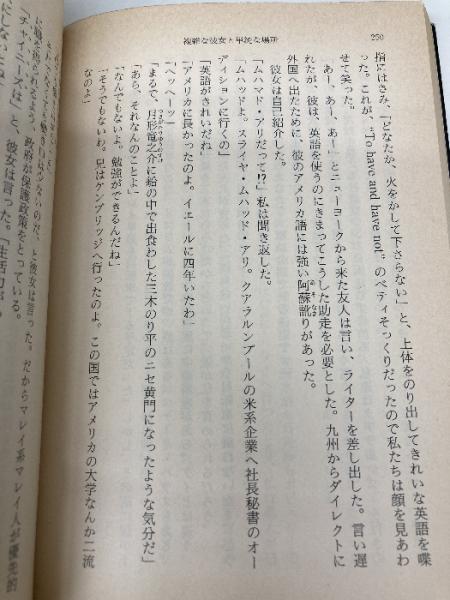 250
複雑な彼女と単純な場所
指にはさみ、「どなたか、火をかして下さらない」と、上体をのり出してきれいな英語を喋
った。これが、"To have and have not" のベティそっくりだったので私たちは顔を見あわ
せて笑った。
「あー、あー、あー」とニューヨークから来た友人は言い、ライターを差し出した。言い遅
れたが、彼は、英語を使うのにきまってこうした助走を必要とした。九州からダイレクトに
外国へ出たために、彼のアメリカ語には強い阿蘇訛りがあった。
彼女は自己紹介した。
「ムハマド・アリだって!?」私は聞き返した。
「ムハッドよ。スライヤ・ムハッド・アリ。クアラルンプールの米系企業へ社長秘書のオー
ディションに行くの」
「英語がきれいだね」
「アメリカに長かったのよ。イエールに四年いたわ」
「ヘッヘーッ」
「あら、それなんのことよ」
「まるで、月形竜之介に絵の中で出食わした三木のり平のニセ黄門になったような気分だ」
「なんでもないよ。勉強ができるんだね」
「そうでもないわ。兄はケンブリッジへ行ったのよ。この国ではアメリカの大学なんか二流
なのよ」
つないのだ、と彼女は言った。だからマレイ系マレイ人が優先的
よう、政府が保護政策をとっている。
「チャイニーズは」と彼女は言った。「生活力が